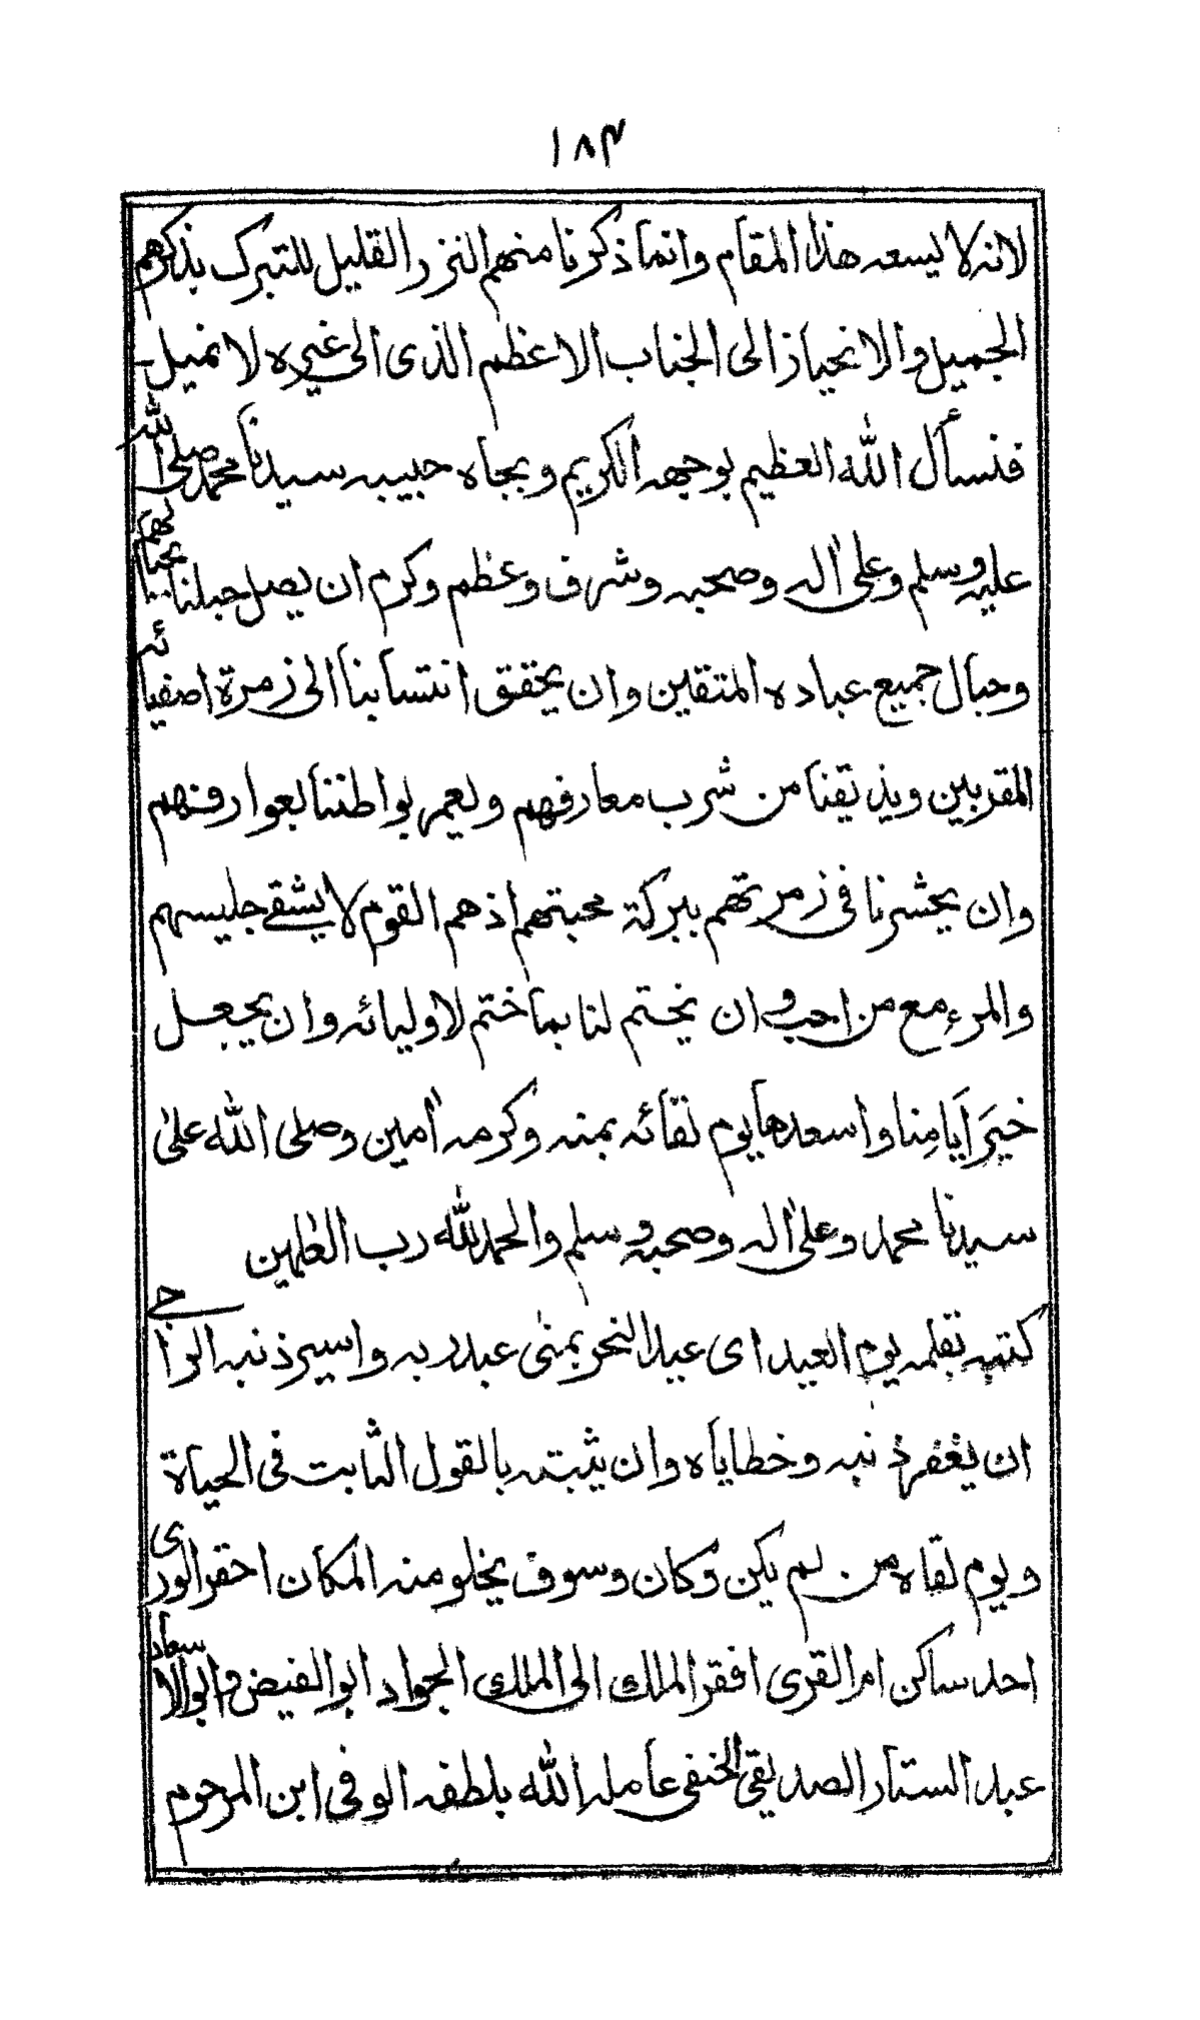 ١٨٣
لانه لا يسعه هذا المقام وانما ذكرنا منهم النزر القليل للتبرك بذكرهم
الجميل والانحياز الى الجناب الاعظم الذى الى غيره لا نميل
فنسأل الله العظيم بوجهه الكريم وبجاه حبيبه سيدنا محمد صلى الله
عليه وسلم وعلى اله وصحبه وشرف وعظم وكرم ان يصل حبلنا بحبالهم
وحبال جميع عباده المتقين وان يحقق انتسابنا الى زمرة اصفيائه
المقربين ويذيقنا من شرب معارفهم ويعمر بواطننا بعوارفهم
وان يحشرنا فى زمرتهم ببركة محبتهم اذ هم القوم لا يشقى جليسهم
والمرء مع من احب وان يختم لنا بما ختم لاوليائه وان يجعل
خيَر اَيامِنا واسعدها يوم لقائه بمنه وكرمه امين وصلى الله على
سيدنا محمد وعلى اله وصحبه وسلم والحمد لله رب العلمين
كتبه بقلمه يوم العيد اى عيد النحر بمنى عبد ربه واسير ذنبه الراجى
ان يغفر ذنبه وخطاياه وان يثبته بالقول الثابت فى الحياة
ويوم لقاه من لم يكن وكان وسوف يخلو منه المكان احقر الورى
احد ساكن ام القرى افقر الملك الى الملك الجواد ابو الفيض وابو الاسعاد
عبد الستار الصديقى الحنفى عامله الله بلطفه الوفى ابن المرحوم